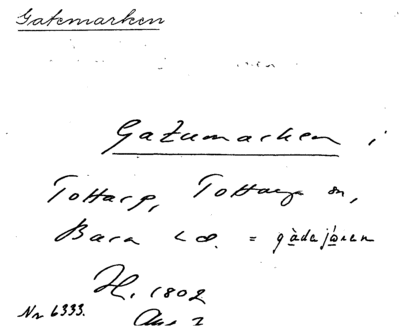 Gatemarken
Gatumarken i
Tottarp, Tottarps sn,
Bara hd. = gàdejóren
H. 1802
Nr 6333.